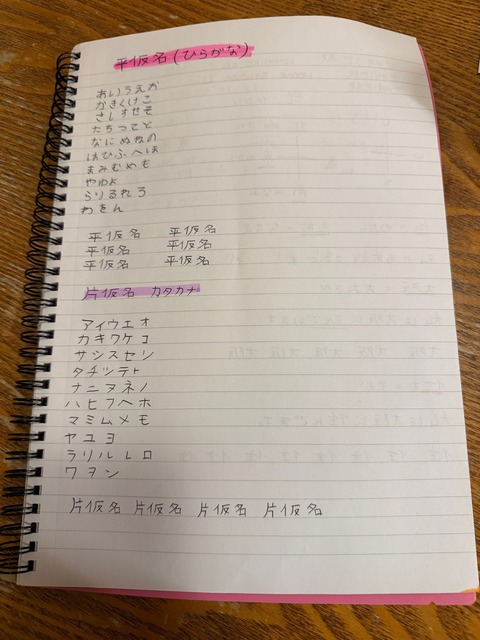 平仮名(ひらがな)
あいうえお
かきくけこ
さしすせそ
たちつてと
なにぬねの
はひふへほ
まみむめも
やゆよ
らりるれろ
わをん
平仮名 平仮名
平仮名 平仮名
平仮名 平仮名
片仮名 カタカナ
アイウエオ
カキクケコ
サシスセソ
タチツテト
ナニヌネノ
ハヒフヘホ
マミムメモ
ヤユヨ
ラリルレロ
ワヲン
片仮名 片仮名 片仮名 片仮名